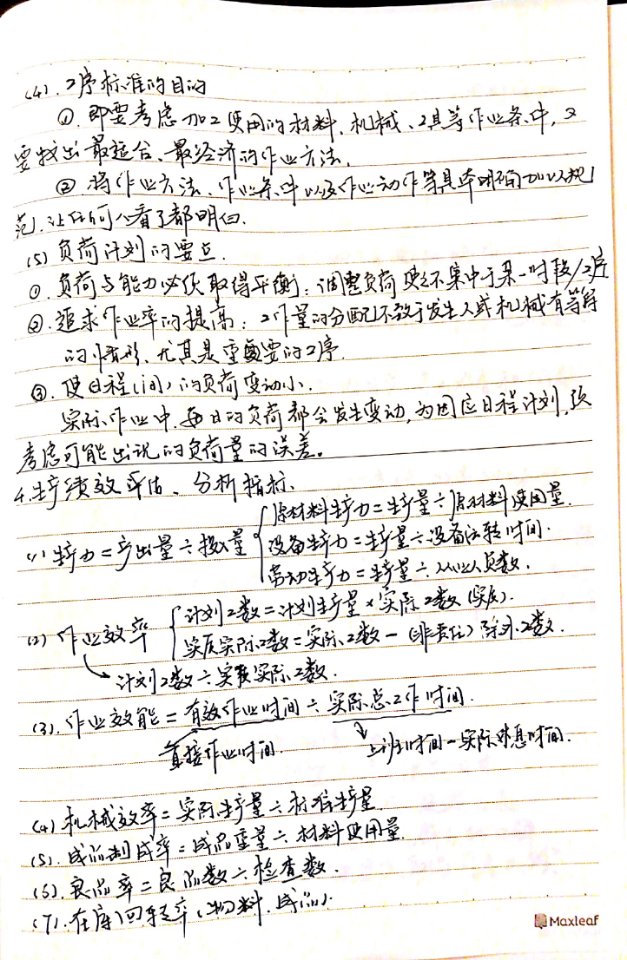 (4). 工序标准的目的
①. 即要考虑加工使用的材料、机械、工具等作业条件，又
要找出最适合、最经济的作业方法.
② 将作业方法、作业条件以及作业动作等具体明确加以规
范.让任何人看了都明白.
(5) 负荷计划的要点.
①. 负荷与能力必须取得平衡；调整负荷使之不集中于某一时段/工序
②. 追求作业率的提高：工作量的分配不致于发生人或机械有等待
的情形、尤其是重要的工序.
③. 使日程(间)的负荷变动小.
实际作业中，每日的负荷都会发生变动，为因应日程计划，须
考虑可能出现的负荷量的误差。
4.生产绩效评估、分析指标.
(1) 生产力=产出量÷投入量
原材料生产力=生产量÷原材料使用量.
设备生产力=生产量÷设备运转时间.
劳动生产力=生产量÷从业人员数.
(2) 作业效率
计划工数=计划生产量×实际工数(实质).
实质实际工数=实际工数-(非责任)除外工数.
计划工数÷实质实际工数.
(3). 作业效能=有效作业时间÷实际总工作时间.
直接作业时间.
上班时间-实际休息时间.
(4) 机械效率=实际生产量÷标准生产量
(5). 成品制成率=成品重量÷材料使用量.
(6). 良品率=良品数÷检查数.
(7). 在库回转率(物料.成品).
Maxleaf